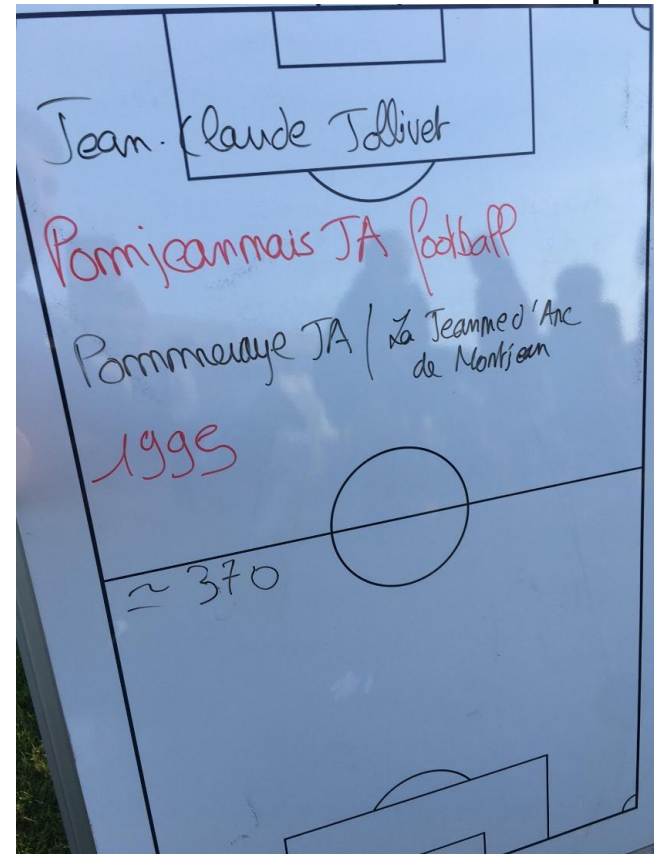 Jean-Claude Jollivet
Pomjeannais JA football
Pommeraye JA / La Jeanne d'Arc
de Montjean
1995
≃ 370